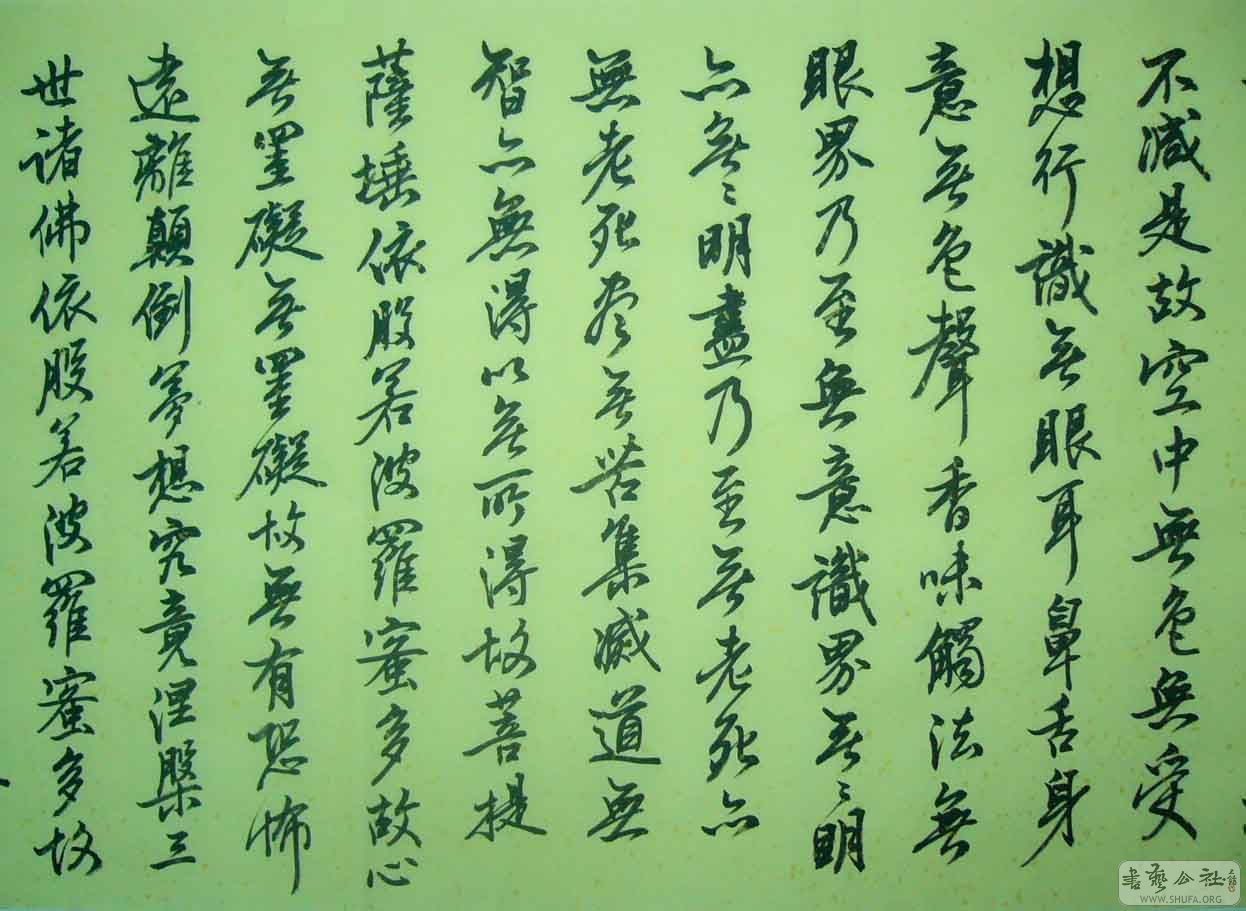 不減是故空中無色無受
想行識無眼耳鼻舌身
意無色聲香味觸法無
眼界乃至無意識界無〻明
亦無〻明盡乃至無老死亦
無老死尽無苦集滅道無
智亦無得以無所得故菩提
薩埵依般若波羅蜜多故心
無罣礙無罣礙故無有恐怖
遠離顛倒夢想究竟涅槃三
世諸佛依般若波羅蜜多故
書藝公社
WWW.SHUFA.ORG